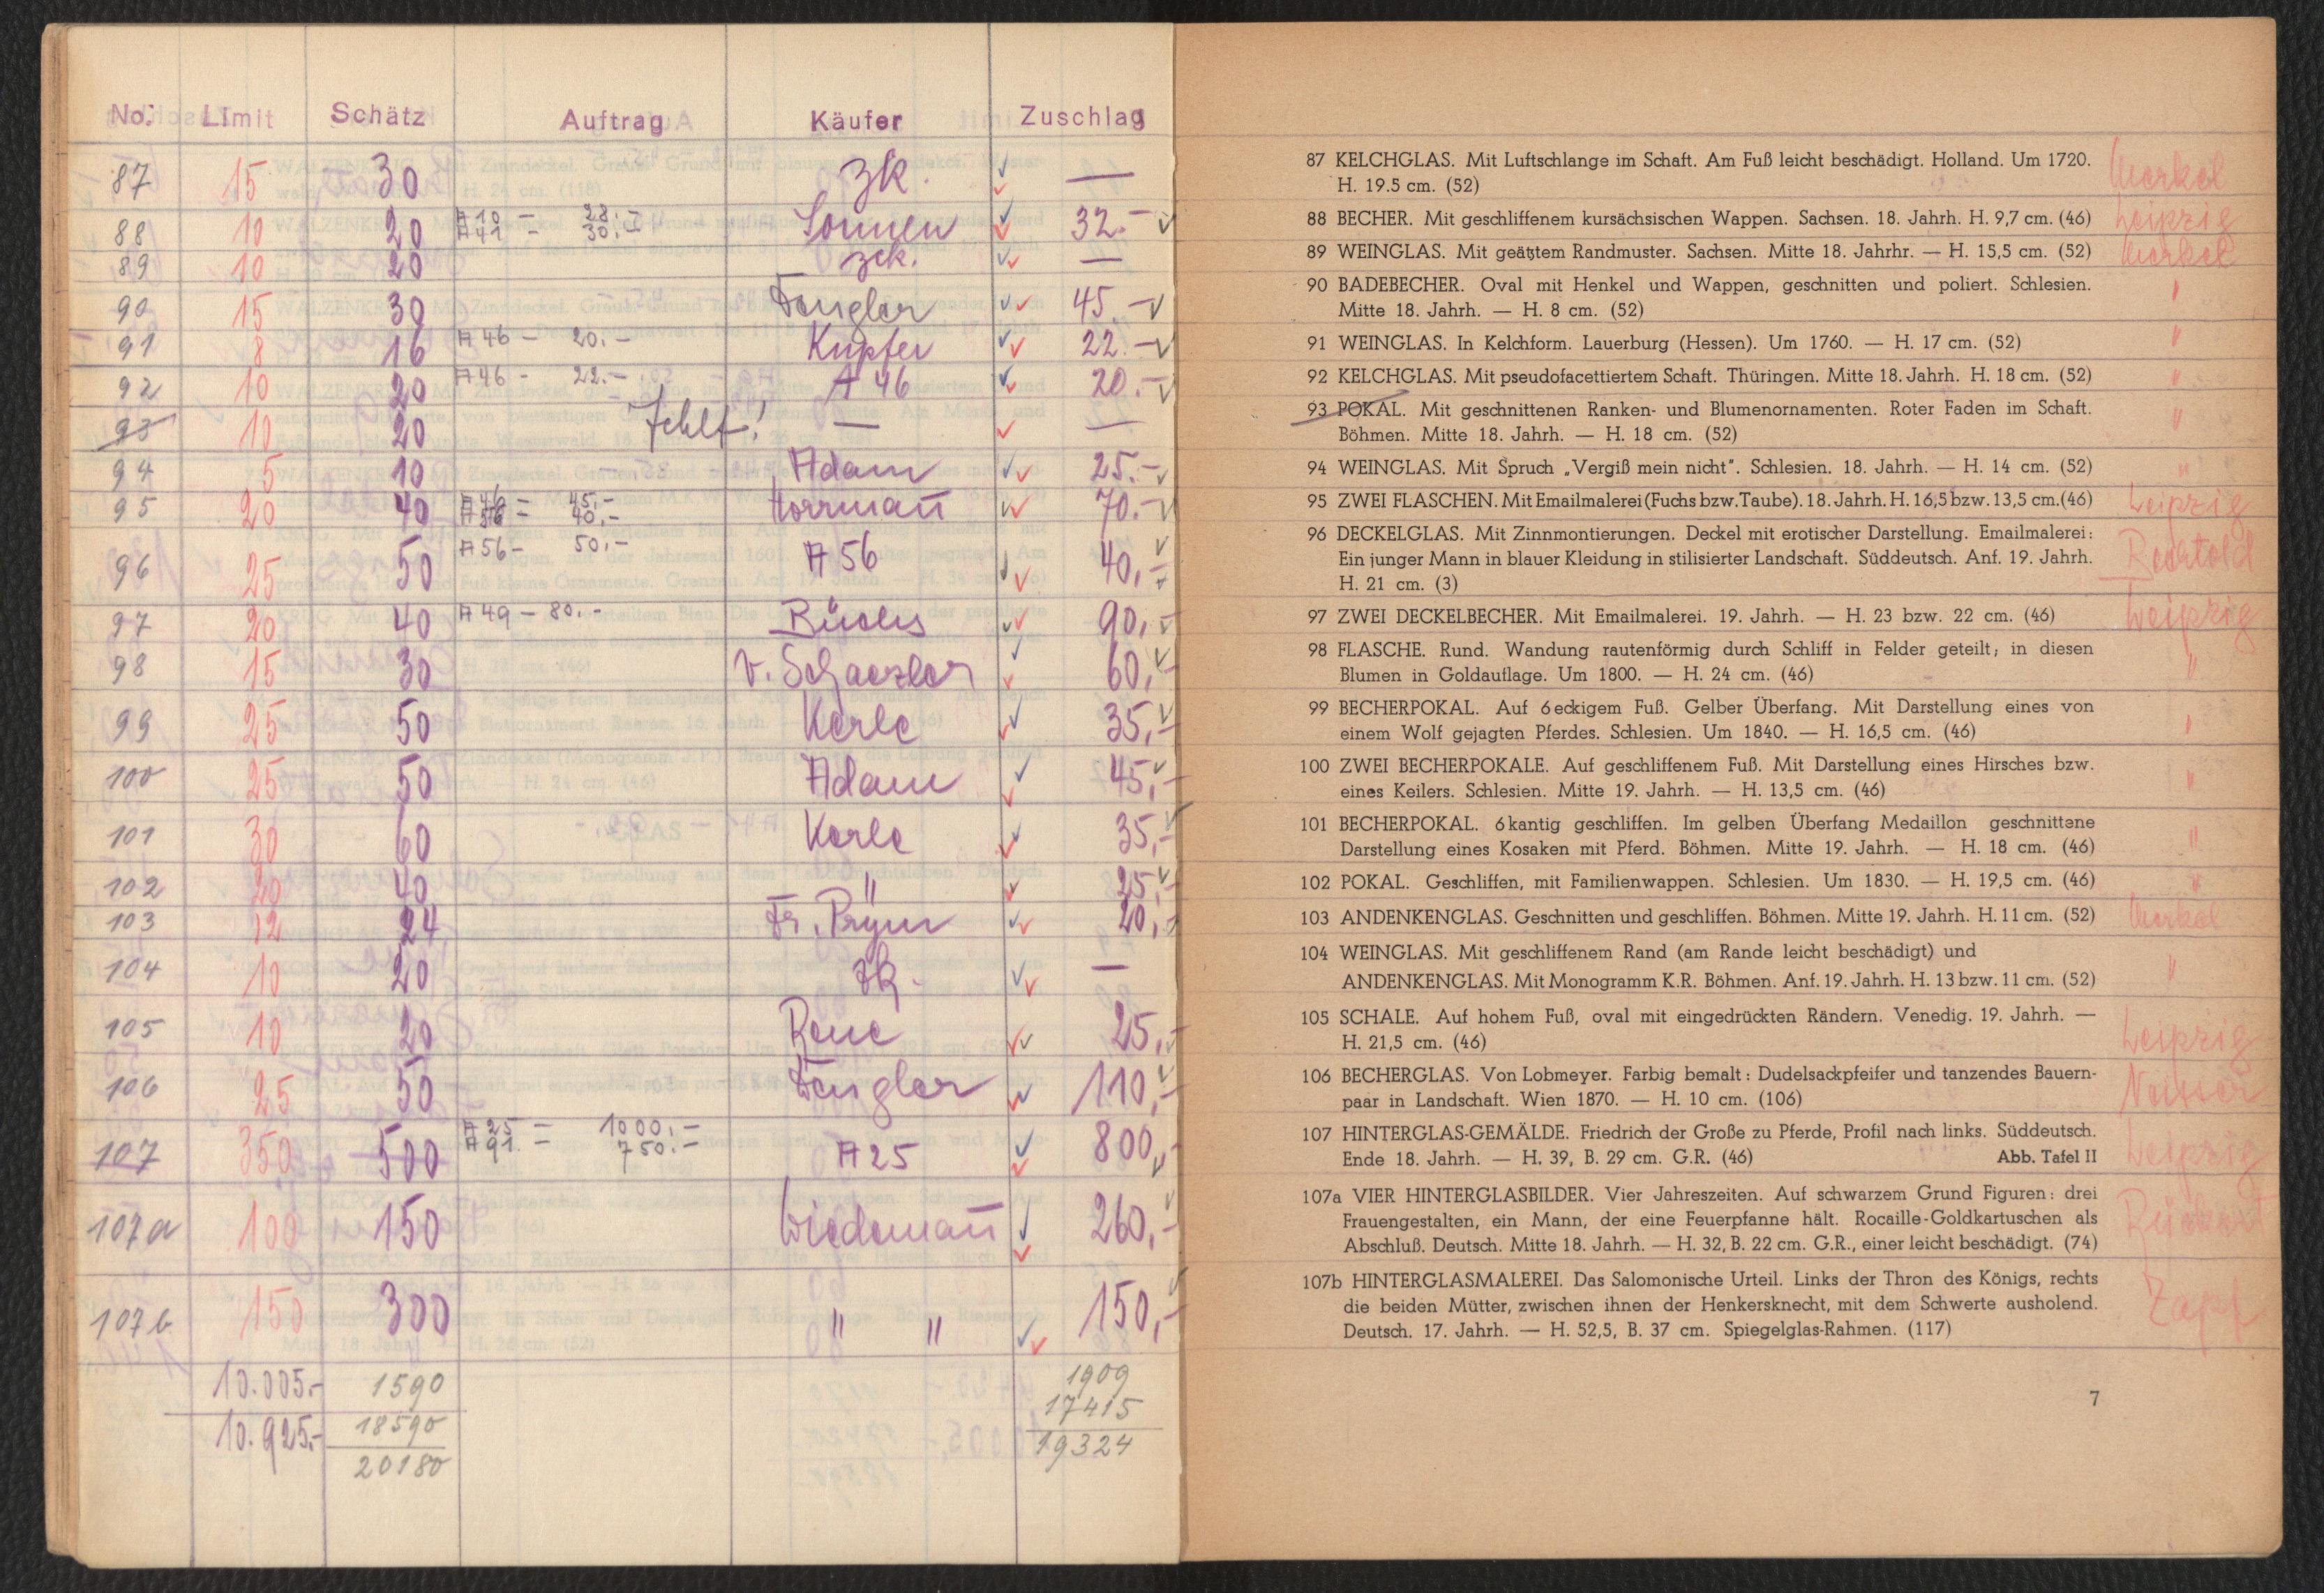 No. Limit Schätz Auftrag Käufer Zuschlag
87 15 30 zk. —
88 10 20 A 10 – 28.– Sonnen 32.–
A 41 – 30.–
89 10 20 zck. —
90 15 30 Fengler 45.–
91 8 16 A 46 – 20.– Kupfer 22.–
92 10 20 A 46 – 22.– A 46 20.–
93 10 20 Fehlt! — —
94 5 10 Adam 25.–
95 20 40 A 46 – 45.– Horrmañ 70.–
A 56 – 40.–
96 25 50 A 56 – 50.– A 56 40,–
97 20 40 A 49 – 80.– 90,–
98 15 30 v. Schaezler 60,–
99 25 50 Kerle 35,–
100 25 50 Adam 45,–
101 30 60 Kerle 35,–
102 20 40 " 25,–
103 12 24 Fr. Prym 20,–
104 10 20 zk. —
105 10 20 Rene 25,–
106 25 50 Fengler 110,–
107 350 500 A 25 – 1000.– A 25 800,–
A 91. – 750.–
107a 100 150 Wiedemañ 260,–
107b 150 300 " " 150,–
10.005.– 1590 1909
10.925.– 18590 17415
20180 19324
87 KELCHGLAS. Mit Luftschlange im Schaft. Am Fuß leicht beschädigt. Holland. Um 1720. Merkel
H. 19.5 cm. (52)
88 BECHER. Mit geschliffenem kursächsischen Wappen. Sachsen. 18. Jahrh. H. 9,7 cm. (46) Leipzig
89 WEINGLAS. Mit geätztem Randmuster. Sachsen. Mitte 18. Jahrhr. — H. 15,5 cm. (52) Merkel
90 BADEBECHER. Oval mit Henkel und Wappen, geschnitten und poliert. Schlesien. "
Mitte 18. Jahrh. — H. 8 cm. (52)
91 WEINGLAS. In Kelchform. Lauerburg (Hessen). Um 1760. — H. 17 cm. (52) "
92 KELCHGLAS. Mit pseudofacettiertem Schaft. Thüringen. Mitte 18. Jahrh. H. 18 cm. (52) "
93 POKAL. Mit geschnittenen Ranken- und Blumenornamenten. Roter Faden im Schaft. "
Böhmen. Mitte 18. Jahrh. — H. 18 cm. (52)
94 WEINGLAS. Mit Spruch „Vergiß mein nicht". Schlesien. 18. Jahrh. — H. 14 cm. (52) "
95 ZWEI FLASCHEN. Mit Emailmalerei (Fuchs bzw. Taube). 18. Jahrh. H. 16,5 bzw. 13,5 cm. (46) Leipzig
96 DECKELGLAS. Mit Zinnmontierungen. Deckel mit erotischer Darstellung. Emailmalerei:
Ein junger Mann in blauer Kleidung in stilisierter Landschaft. Süddeutsch. Anf. 19. Jahrh.
H. 21 cm. (3)
97 ZWEI DECKELBECHER. Mit Emailmalerei. 19. Jahrh. — H. 23 bzw. 22 cm. (46) Leipzig
98 FLASCHE. Rund. Wandung rautenförmig durch Schliff in Felder geteilt; in diesen "
Blumen in Goldauflage. Um 1800. — H. 24 cm. (46)
99 BECHERPOKAL. Auf 6eckigem Fuß. Gelber Überfang. Mit Darstellung eines von "
einem Wolf gejagten Pferdes. Schlesien. Um 1840. — H. 16,5 cm. (46)
100 ZWEI BECHERPOKALE. Auf geschliffenem Fuß. Mit Darstellung eines Hirsches bzw. "
eines Keilers. Schlesien. Mitte 19. Jahrh. — H. 13,5 cm. (46)
101 BECHERPOKAL. 6kantig geschliffen. Im gelben Überfang Medaillon geschnittene "
Darstellung eines Kosaken mit Pferd. Böhmen. Mitte 19. Jahrh. — H. 18 cm. (46)
102 POKAL. Geschliffen, mit Familienwappen. Schlesien. Um 1830. — H. 19,5 cm. (46) "
103 ANDENKENGLAS. Geschnitten und geschliffen. Böhmen. Mitte 19. Jahrh. H. 11 cm. (52) Merkel
104 WEINGLAS. Mit geschliffenem Rand (am Rande leicht beschädigt) und "
ANDENKENGLAS. Mit Monogramm K.R. Böhmen. Anf. 19. Jahrh. H. 13 bzw. 11 cm. (52)
105 SCHALE. Auf hohem Fuß, oval mit eingedrückten Rändern. Venedig. 19. Jahrh. — Leipzig
H. 21,5 cm. (46)
106 BECHERGLAS. Von Lobmeyer. Farbig bemalt: Dudelsackpfeifer und tanzendes Bauern-
paar in Landschaft. Wien 1870. — H. 10 cm. (106)
107 HINTERGLAS-GEMÄLDE. Friedrich der Große zu Pferde, Profil nach links. Süddeutsch. Leipzig
Ende 18. Jahrh. — H. 39, B. 29 cm. G.R. (46) Abb. Tafel II
107a VIER HINTERGLASBILDER. Vier Jahreszeiten. Auf schwarzem Grund Figuren: drei
Frauengestalten, ein Mann, der eine Feuerpfanne hält. Rocaille-Goldkartuschen als
Abschluß. Deutsch. Mitte 18. Jahrh. — H. 32, B. 22 cm. G.R., einer leicht beschädigt. (74)
107b HINTERGLASMALEREI. Das Salomonische Urteil. Links der Thron des Königs, rechts Zapf
die beiden Mütter, zwischen ihnen der Henkersknecht, mit dem Schwerte ausholend.
Deutsch. 17. Jahrh. — H. 52,5, B. 37 cm. Spiegelglas-Rahmen. (117)
7